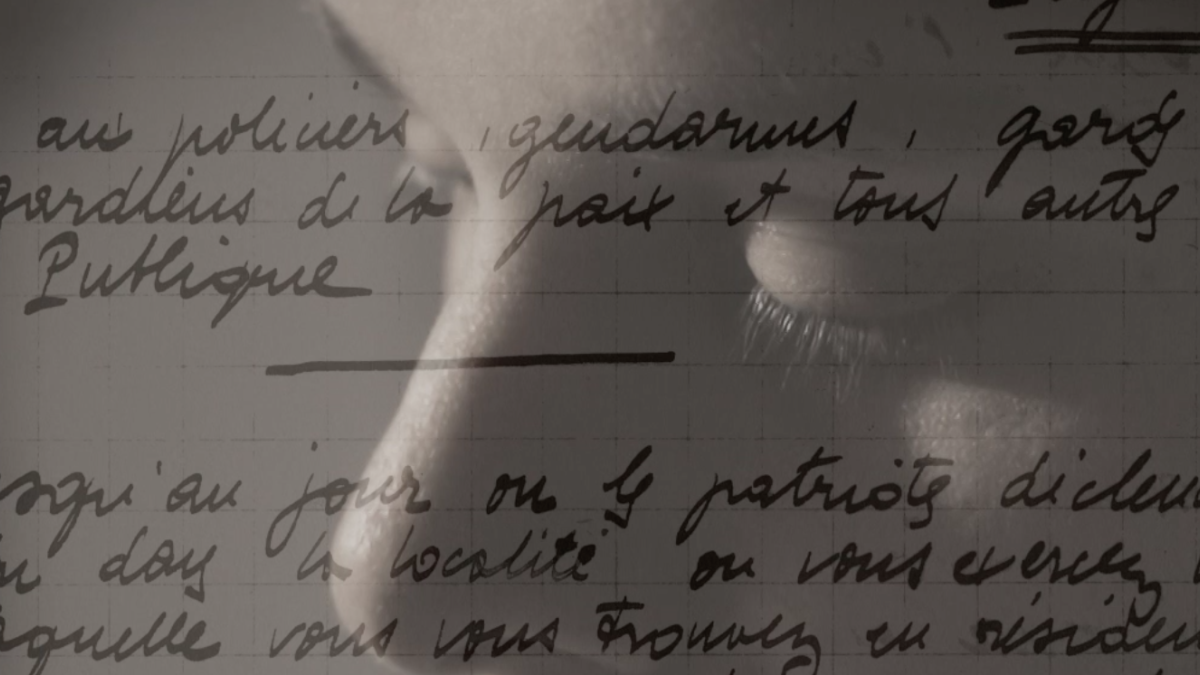 aux policiers, gendarmes, gardes
gardiens de la paix et tous autres
Publique
jusqu'au jour ou les patriotes
dans la localité ou vous exercez
laquelle vous vous trouvez en